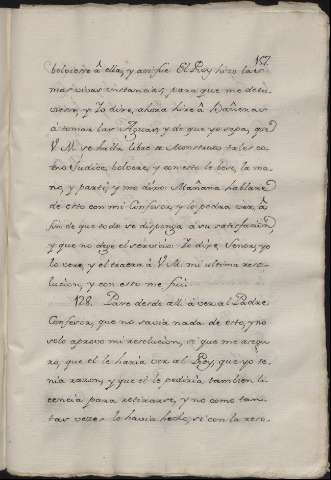 157.
bolviesse â ella, y assi fue. El Rey hizo las
mas vivas instancias, para que me detu-
viesse, y Yo dixe, ahora hire â Bañeras
â tomar las Aguas, y de que yo sepa, que
V. M. se halla libre de Monstruos tales co-
mo Judice, bolvere, y con esto le bese la ma-
no, y parti, y me dixo: Mañana hablare
de esto con mi Confesor, y lo podra ver, â
fin de que todo se disponga â su satisfaccion,
y que no dexe el servicio. Yo dixe, Señor, yo
lo vere, y el traera â V. M. mi ultima reso-
lucion, y con esto me fui.
128. Pase desde alli â ver al Padre
Confesor, que no savia nada de esto, y no
solo aprovo mi resolucion, si que me asegu-
ro, que el le haria ver al Rey, que yo te-
nia razon, y que el le pediria tambien li-
cencia para retirarse, y no como tan-
tas vezes lo havia hecho, si con la reso-